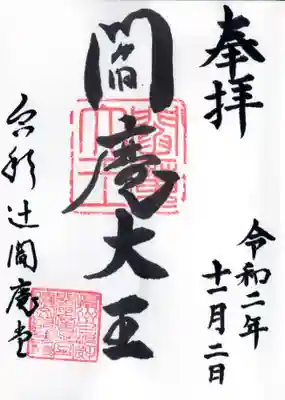 奉拝
令和二年
十二月二日
閻魔大王
辻閻魔堂